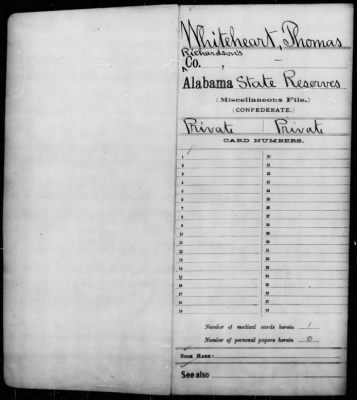 Whiteheart, Thomas
Richardson's
Co. , -
Alabama State Reserves
(Miscellaneous File.)
(CONFEDERATE.)
Private Private
CARD NUMBERS.
1 20
2 21
3 22
4 23
5 24
6 25
7 26
8 27
9 28
10 29
11 30
12 31
13 32
14 33
15 34
16 35
17 36
18 37
19 38
Number of medical cards herein 1
Number of personal papers herein 0
BOOK MARK:
See also